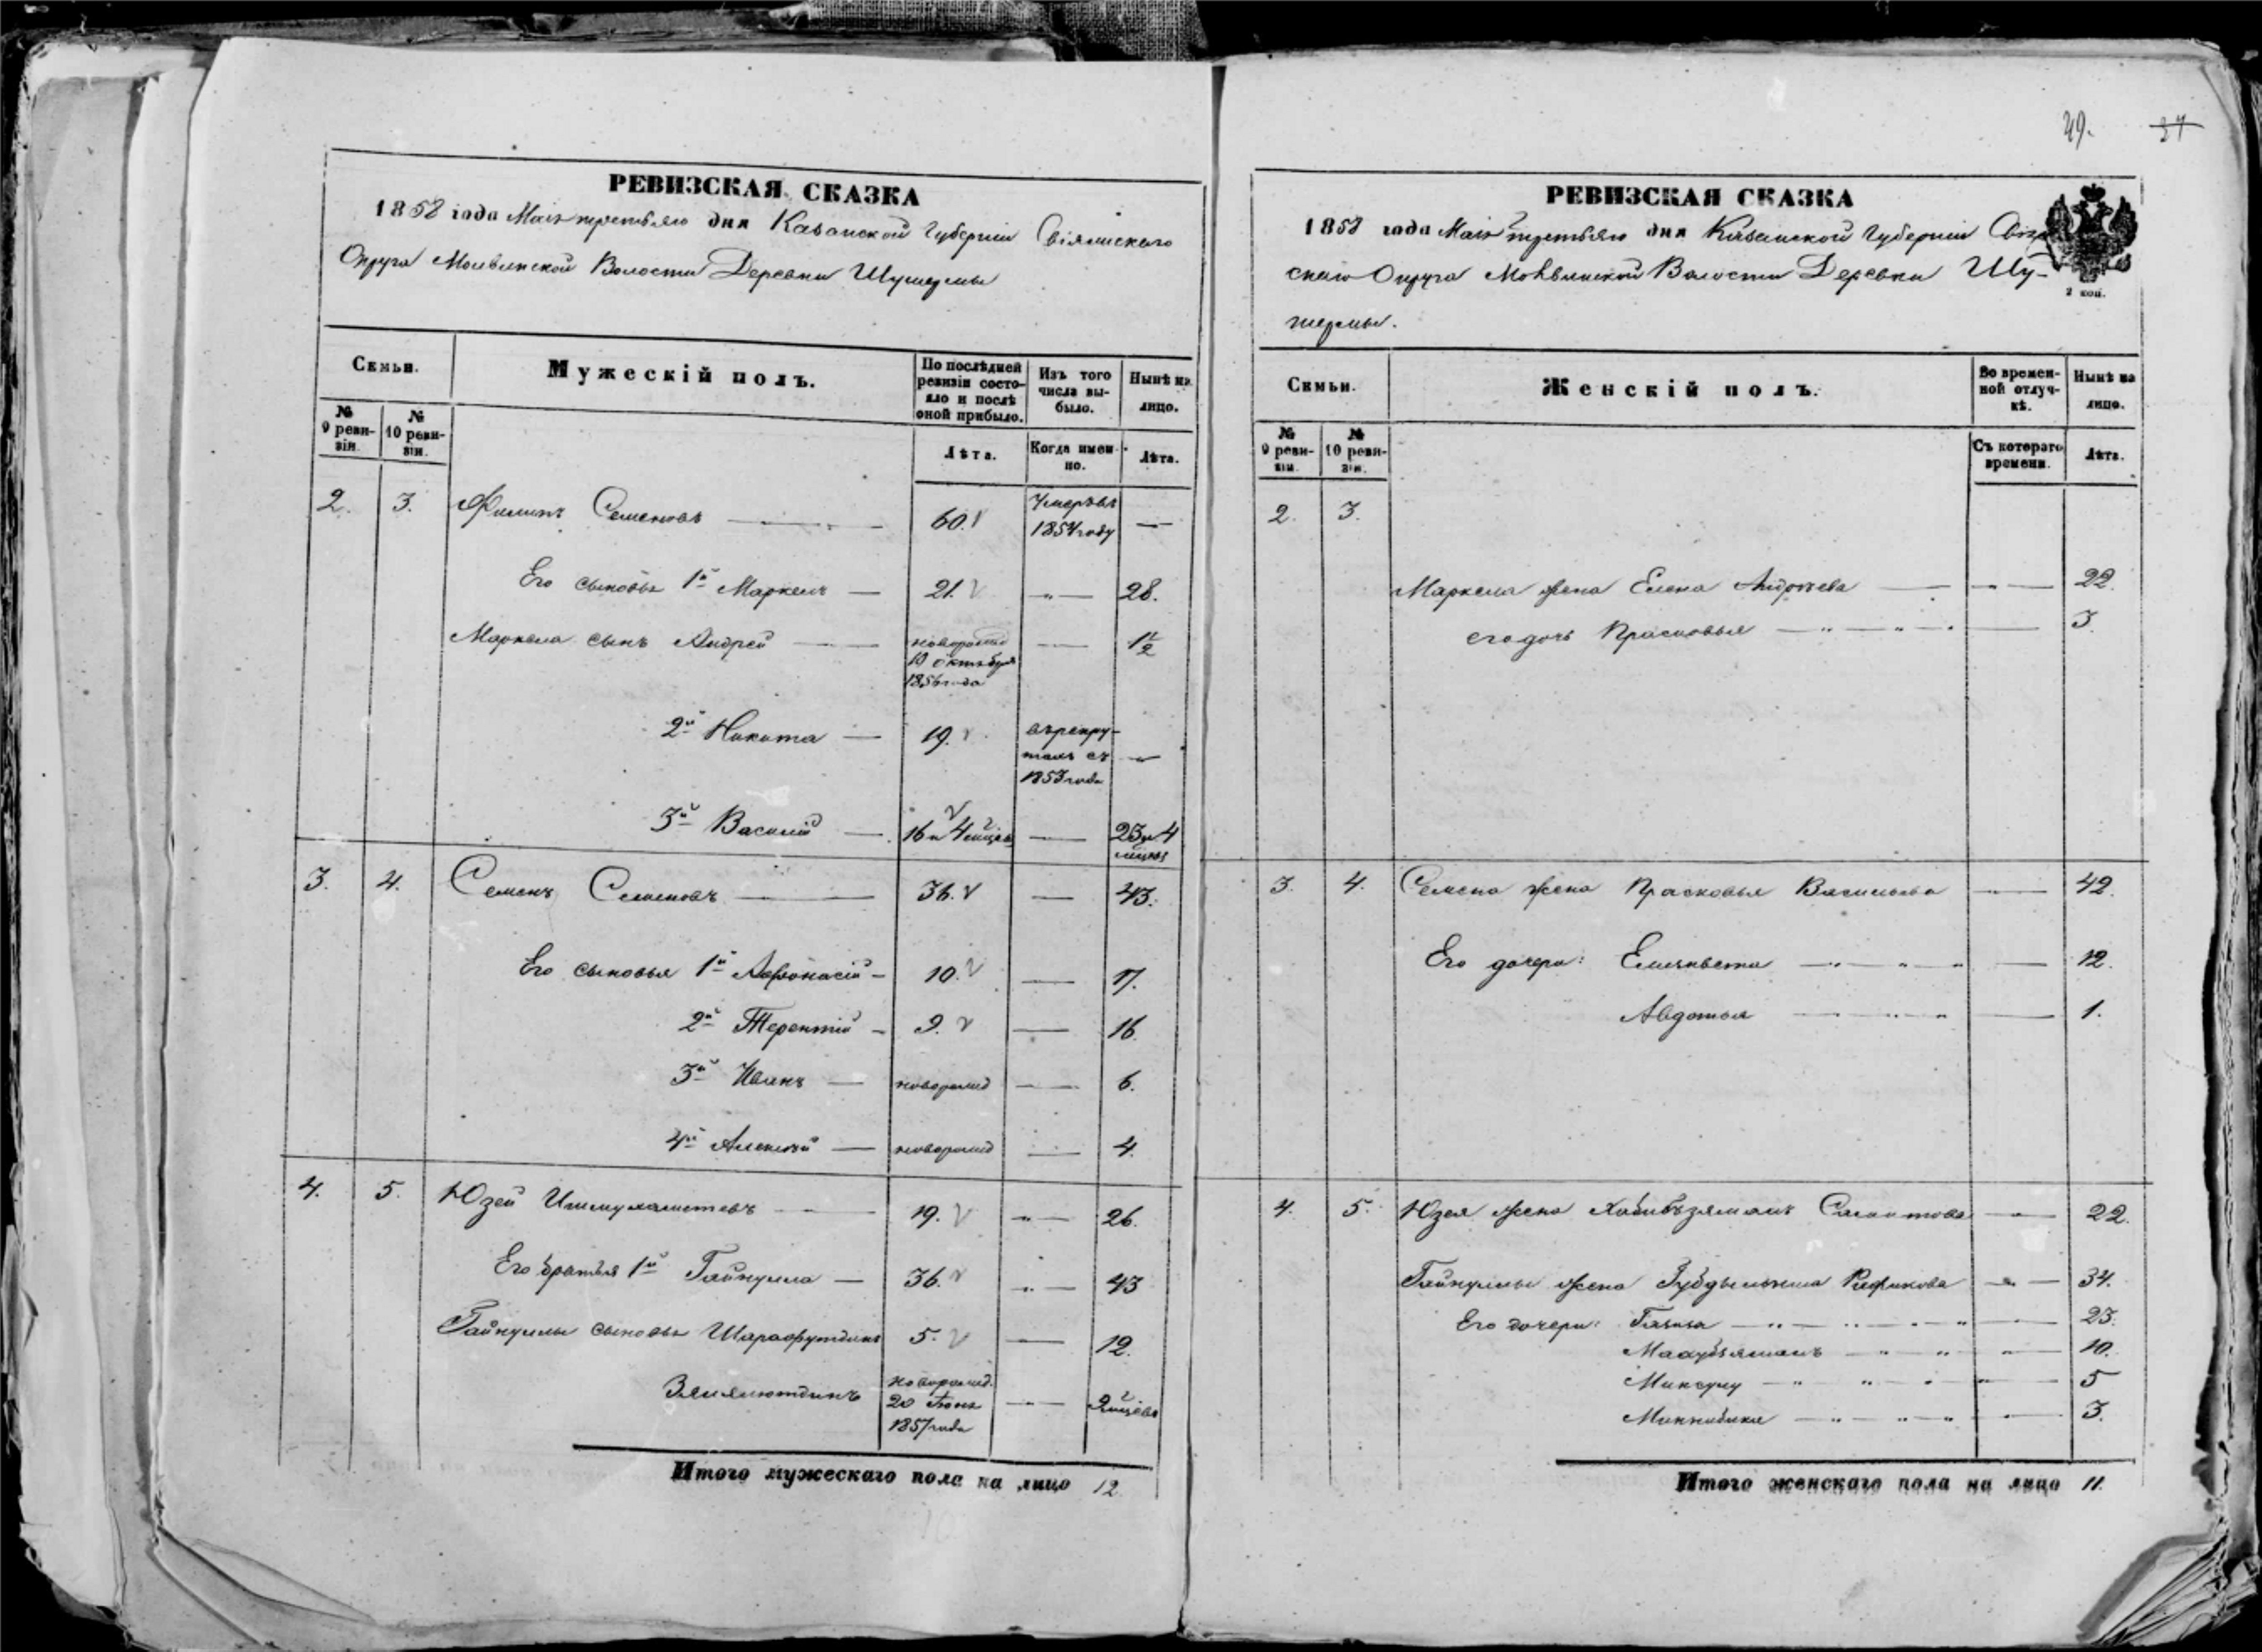 РЕВИЗСКАЯ СКАЗКА
1858 года Маія третьяго дня Казанской Губерніи Свіяжскаго
Округа Молвинской Волости Деревни
Семьи.
Мужескій полъ.
По послѣдней ревизіи состояло и послѣ оной прибыло.
Изъ того числа выбыло.
Нынѣ на лицо.
№ 9 ревизіи.
№ 10 ревизіи.
Лѣта.
Когда именно.
Лѣта.
2. 3. Филипъ Семеновъ — 60. Умеръ въ 1854 году —
Его сыновья 1й Маркелъ — 21. „ — 28.
Маркела сынъ Андрей — новорожд 10 октября 1856 года — 1½
2й Никита — 19. въ рекрутахъ съ 1853 года „
3й Василій — 16 и 4 мѣсяц — 23 и 4 мѣсяц
3. 4. Семенъ Семеновъ — 36. — 43.
Его сыновья 1й Афонасій — 10. — 17.
2й Терентій — 9. — 16.
3й Иванъ — новорожд — 6.
4й Алексей — новорожд — 4.
4. 5. Юзей Ишмухаметевъ — 19. „ — 26.
Его братья 1й Гайнулла — 36. „ — 43
Гайнуллы сыновья Шарафутдинъ 5. — 12.
новорожд. 20 1857 года —
Итого мужескаго пола на лицо 12.
49. 37
РЕВИЗСКАЯ СКАЗКА
1858 года Маія третьяго дня Казанской Губерніи Свіяж
скаго Округа Молвинской Волости Деревни Шу-
2 коп.
Семьи.
Женскій полъ.
Во временной отлучкѣ.
Нынѣ на лицо.
№ 9 ревизіи.
№ 10 ревизіи.
Съ котораго времени.
Лѣта.
2. 3.
Маркела жена Елена Андреева — „ — 22.
его дочь Прасковья — „ — „ — 3.
3. 4. Семена жена Прасковья Васильева „ — 42.
Его дочери: Елизавета — „ — „ — 12.
Авдотья — „ — „ — 1.
4. 5. Юзея жена Хабибъзямалъ — „ — 22.
Гайнуллы жена Рафикова — „ — 34.
Его дочери: — „ — „ — 23.
— „ — „ — 10.
— „ — „ — 5
Миннибика — „ — „ — 3.
Итого женскаго пола на лицо 11.